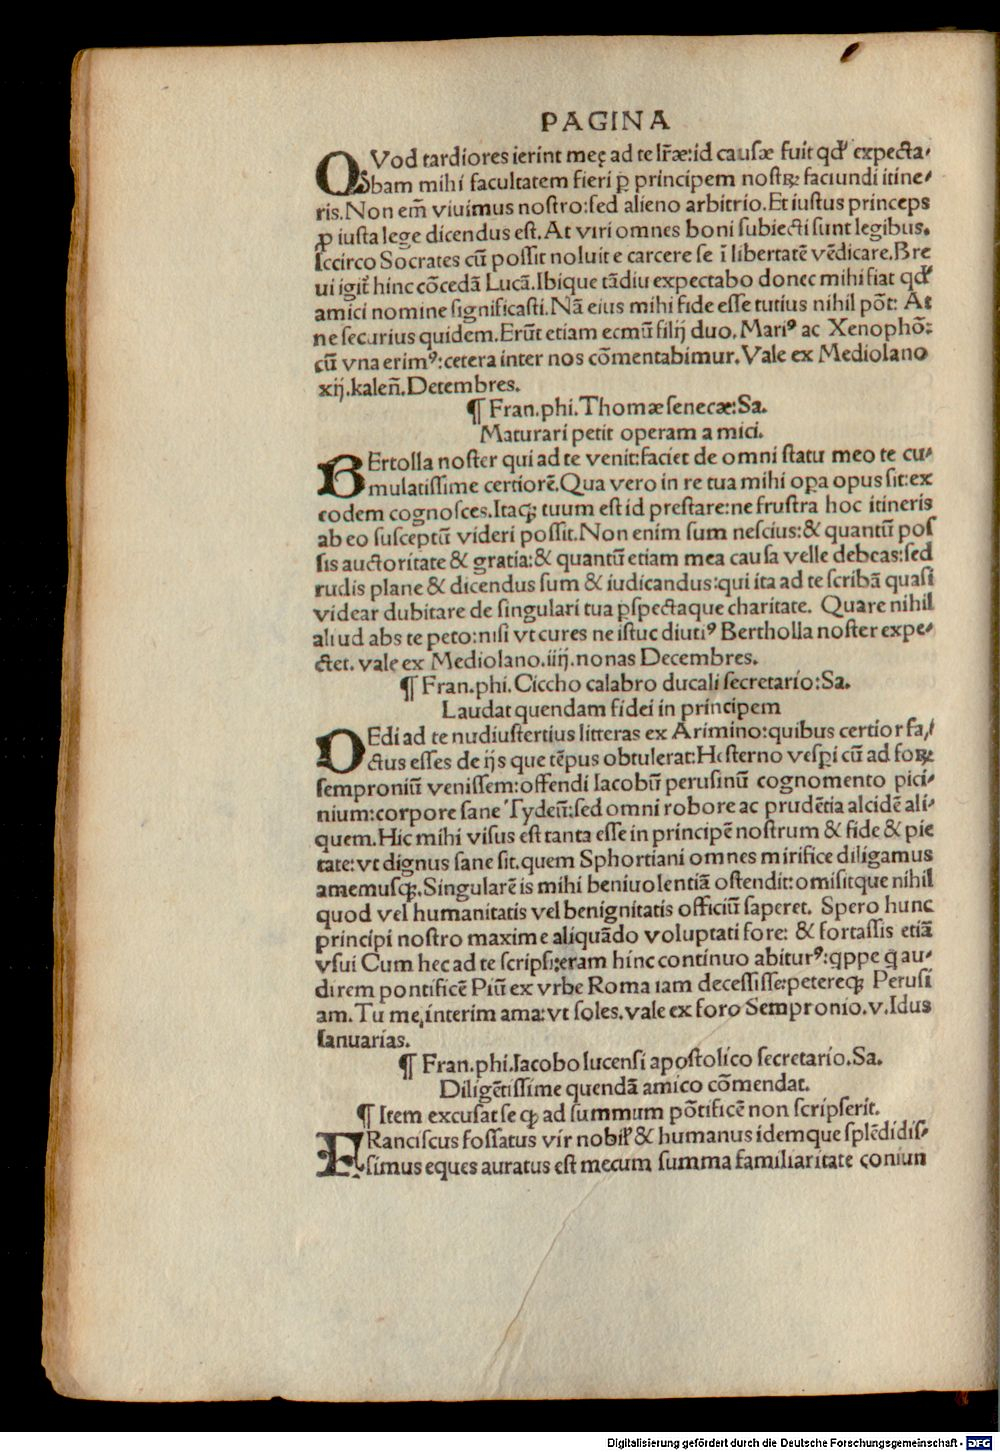 PAGINA
QVod tardiores ierint meę ad te lr̃æ:id causæ fuit qđ expecta-
bam mihi facultatem fieri ꝑ principem nostꝝ faciundi itine-
ris.Non em̃ viuimus nostro:sed alieno arbitrio.Et iustus princeps
ꝓ iusta lege dicendus est.At viri omnes boni subiecti sunt legibus.
Iccirco Socrates cū possit noluit e carcere se ī libertatē vēdicare.Bre
ui igit̃ hinc cōcedā Lucā.Ibique tādiu expectabo donec mihi fiat qđ
amici nomine significasti.Nā eius mihi fide esse tutius nihil põt: At
ne securius quidem.Erūt etiam ecmū filij duo.Mariꝰ ac Xenophō:
cū vna erimꝰ:cetera inter nos cōmentabimur.Vale ex Mediolano
xij.kaleñ.Detembres.
¶ Fran.phi.Thomæ senecæ:Sa.
Maturari petit operam amici.
BErtolla noster qui ad te venit:faciet de omni statu meo te cu-
mulatissime certiorē.Qua vero in re tua mihi oꝑa opus sit:ex
eodem cognosces.Itaqꝫ tuum est id prestare:ne frustra hoc itineris
ab eo susceptū videri possit.Non enim sum nescius:& quantū pos
sis auctoritate & gratia:& quantū etiam mea causa velle debeas:sed
rudis plane & dicendus sum & iudicandus:qui ita ad te scribā quasi
videar dubitare de singulari tua ꝑspectaque charitate. Quare nihil
aliud abs te peto:nisi vt cures ne istuc diutiꝰ Bertholla noster expe-
ctet. vale ex Mediolano.iiij.nonas Decembres.
¶ Fran.phi.Ciccho calabro ducali secretario:Sa.
Laudat quendam fidei in principem
DEdi ad te nudiustertius litteras ex Arimino:quibus certior fa-
ctus esses de ijs que tēpus obtulerat:Hesterno vesꝑi cū ad foꝝ
semproniū venissem:offendi Iacobū perusinū cognomento pici-
nium:corpore sane Tydeū:sed omni robore ac prudētia alcidē ali-
quem.Hic mihi visus est tanta esse in principē nostrum & fide & pie
tate:vt dignus sane sit.quem Sphortiani omnes mirifice diligamus
amemusqꝫ.Singularē is mihi beniuolentiā ostendit:omisitque nihil
quod vel humanitatis vel benignitatis officiū saperet. Spero hunc
principi nostro maxime aliquādo voluptati fore: & fortassis etiā
vsui Cum hec ad te scripsi:eram hinc continuo abiturꝰ:qppe q au-
direm pontificē Piū ex vrbe Roma iam decessisse:petereqꝫ Perusi
am.Tu me interim ama:vt soles.vale ex foro Sempronio.v.Idus
Ianuarias.
¶ Fran.phi.Iacobo lucensi apostolico secretario.Sa.
Diligētissime quendā amico cōmendat.
¶ Item excusat se qꝫ ad summum pōtificē non scripserit.
FRanciscus fossatus vir nobil̃ & humanus idemque splēdidis-
simus eques auratus est mecum summa familiaritate coniun
Digitalisierung gefördert durch die Deutsche Forschungsgemeinschaft - DFG